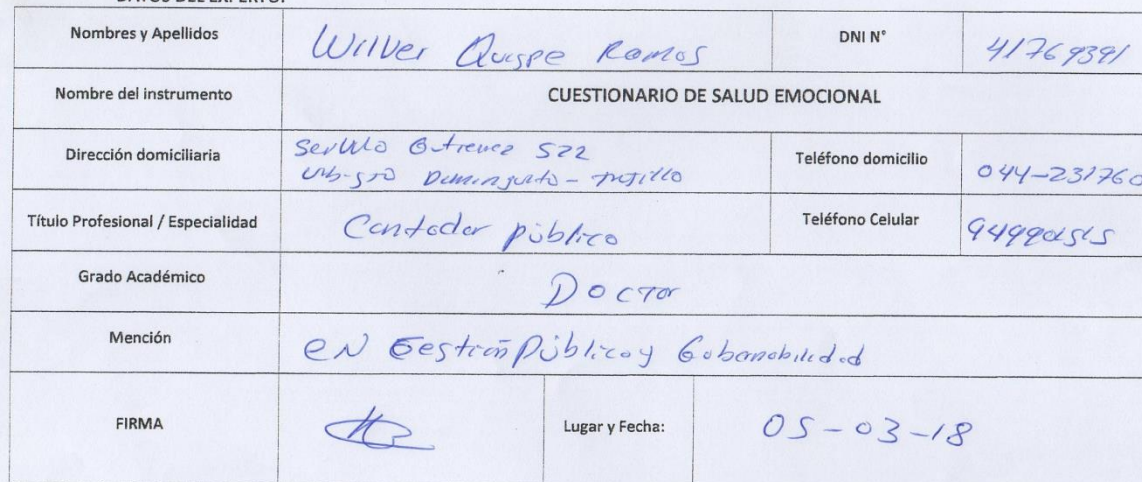 DATOS DEL EXPERTO:
Nombres y Apellidos
Wilver Quispe Ramos
DNI N°
41769391
Nombre del instrumento
CUESTIONARIO DE SALUD EMOCIONAL
Dirección domiciliaria
522
Urb. Sto Dominguito - Trujillo
Teléfono domicilio
044-231760
Título Profesional / Especialidad
Contador público
Teléfono Celular
Grado Académico
Doctor
Mención
en Gestión Pública y Gobernabilidad
FIRMA
Lugar y Fecha:
05-03-18